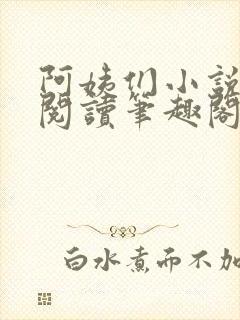 阿姨们小說
閱讀筆趣閣
白水煮而不加